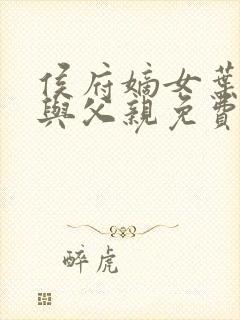 侯府嫡女葉
與父親免費
醉虎